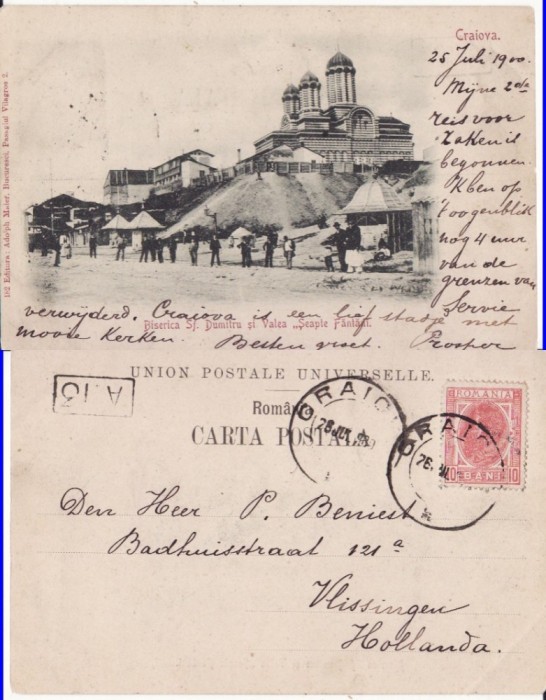 Craiova.
25 Juli 1900.
Mijne 2de
reis voor
zaken is
begonnen.
K ben op
't oogenblik
nog 4 uur
van de
grenzen van
Servie
verwyderd. Craiova is een lief stadje met
mooie Kerken. Besten groet.
Biserica Sf. Dumitru și Valea „Șeapte Fântâni.
182 Editura: Adolph Maier, Bucuresci, Pasagiul Villagros 2.
A.13
UNION POSTALE UNIVERSELLE.
România
CARTA POSTALA
CRAIO
26 JUL
CRAIO
26 JUL
ROMANIA
10 BANI 10
Den Heer P. Beniest
Badhuisstraat 121a
Vlissingen
Hollanda.